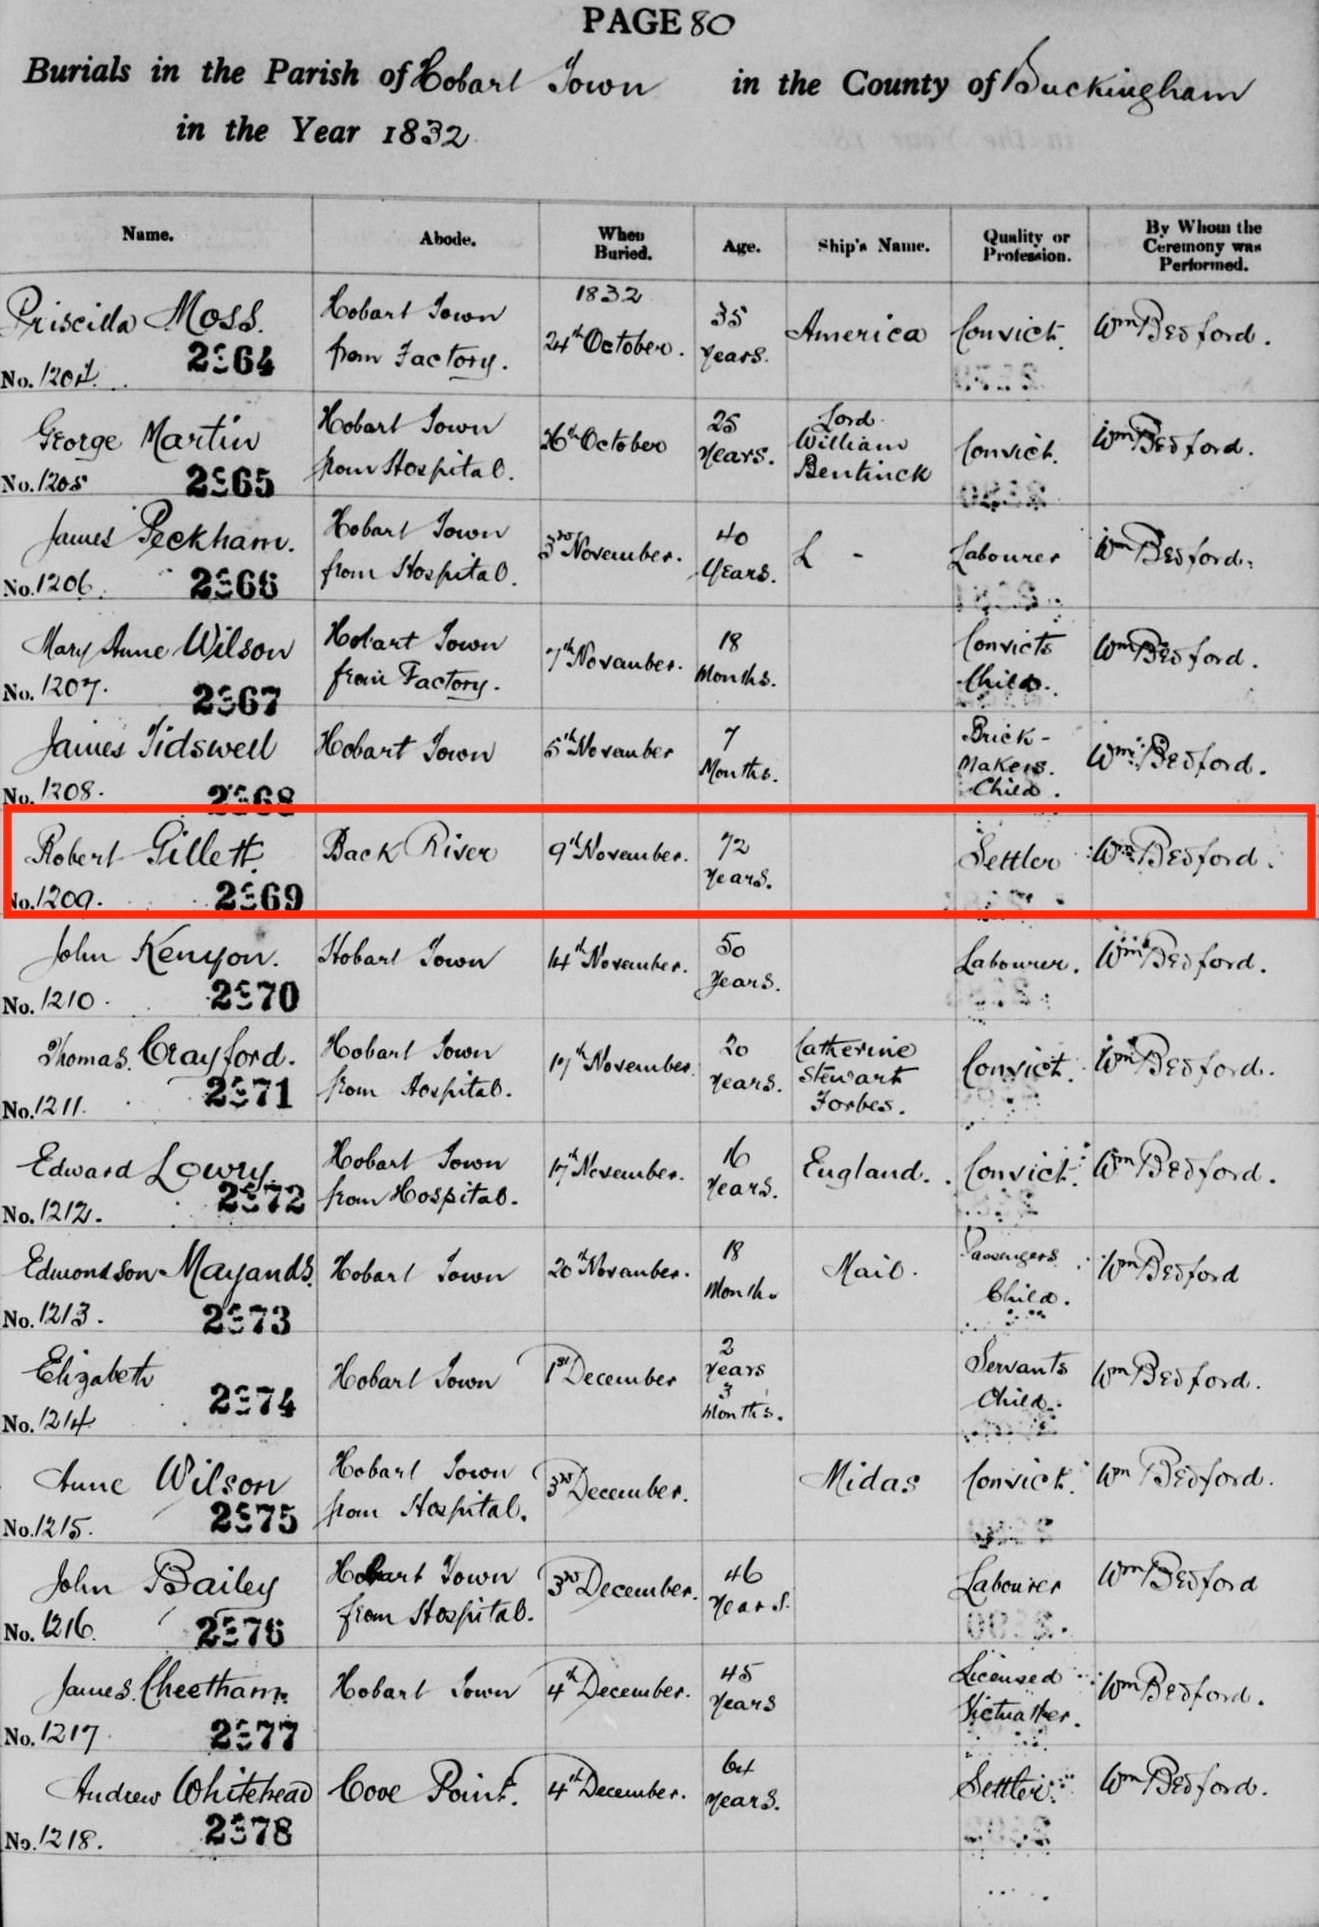 PAGE 80
Burials in the Parish of Hobart Town in the County of Buckingham
in the Year 1832
Name. Abode. When Buried. Age. Ship's Name. Quality or Profession. By Whom the Ceremony was Performed.
1832
Priscilla Moss. Hobart Town from Factory. 24th October. 35 Years. America Convict. Wm Bedford.
No. 1204. 2364
George Martin Hobart Town from Hospital. 26th October 25 Years. Lord William Bentinck Convict. Wm Bedford.
No. 1205 2365
James Peckham. Hobart Town from Hospital. 3rd November. 40 Years. L - Labourer Wm Bedford.
No. 1206. 2366
Mary Anne Wilson Hobart Town from Factory. 7th November. 18 Months. Convicts Child. Wm Bedford.
No. 1207. 2367
James Tidswell Hobart Town 5th November 7 Months. Brick-Makers. Child. Wm Bedford.
No. 1208. 2368
Robert Gillett. Back River 9th November. 72 Years. Settler Wm Bedford.
No. 1209. 2369
John Kenyon. Hobart Town 14th November. 50 Years. Labourer. Wm Bedford.
No. 1210. 2370
Thomas. Crayford. Hobart Town from Hospital. 17th November. 20 Years. Catherine Stewart Forbes. Convict. Wm Bedford.
No. 1211. 2371
Edward Lowry Hobart Town from Hospital. 17th November. 16 Years. England. Convict. Wm Bedford.
No. 1212. 2372
Edmondson Mayands. Hobart Town 20th November. 18 Months Mail. Passengers Child. Wm Bedford
No. 1213. 2373
Elizabeth Hobart Town 1st December 2 Years 3 Months. Servants Child. Wm Bedford.
No. 1214 2374
Anne Wilson Hobart Town from Hospital. 3rd December. Midas Convict. Wm Bedford.
No. 1215. 2375
John Bailey Hobart Town from Hospital. 3rd December. 46 Years. Labourer Wm Bedford
No. 1216. 2376
James. Cheetham. Hobart Town 4th December. 45 Years Licensed Victualler. Wm Bedford.
No. 1217 2377
Andrew Whitehead Cove Point. 4th December. 64 Years. Settler. Wm Bedford.
No. 1218. 2378